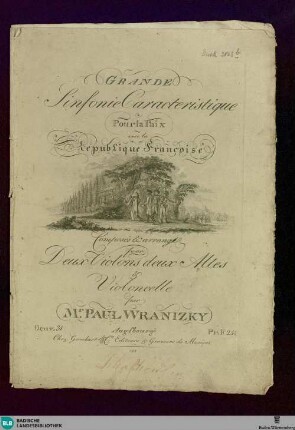 GRANDE
Sinfonie Caracteristique
Pour la Paix
avec la
Republique Françoise
Composée & arrangé
Pour
Deux Violons deux Altes
&
Violoncelle
par
Mr. PAUL WRANIZKY
Oeuvre 31
Chez Gombart & Comp. Editeurs & Graveurs de Musique
BLB
BADISCHE
LANDESBIBLIOTHEK
Baden-Württemberg